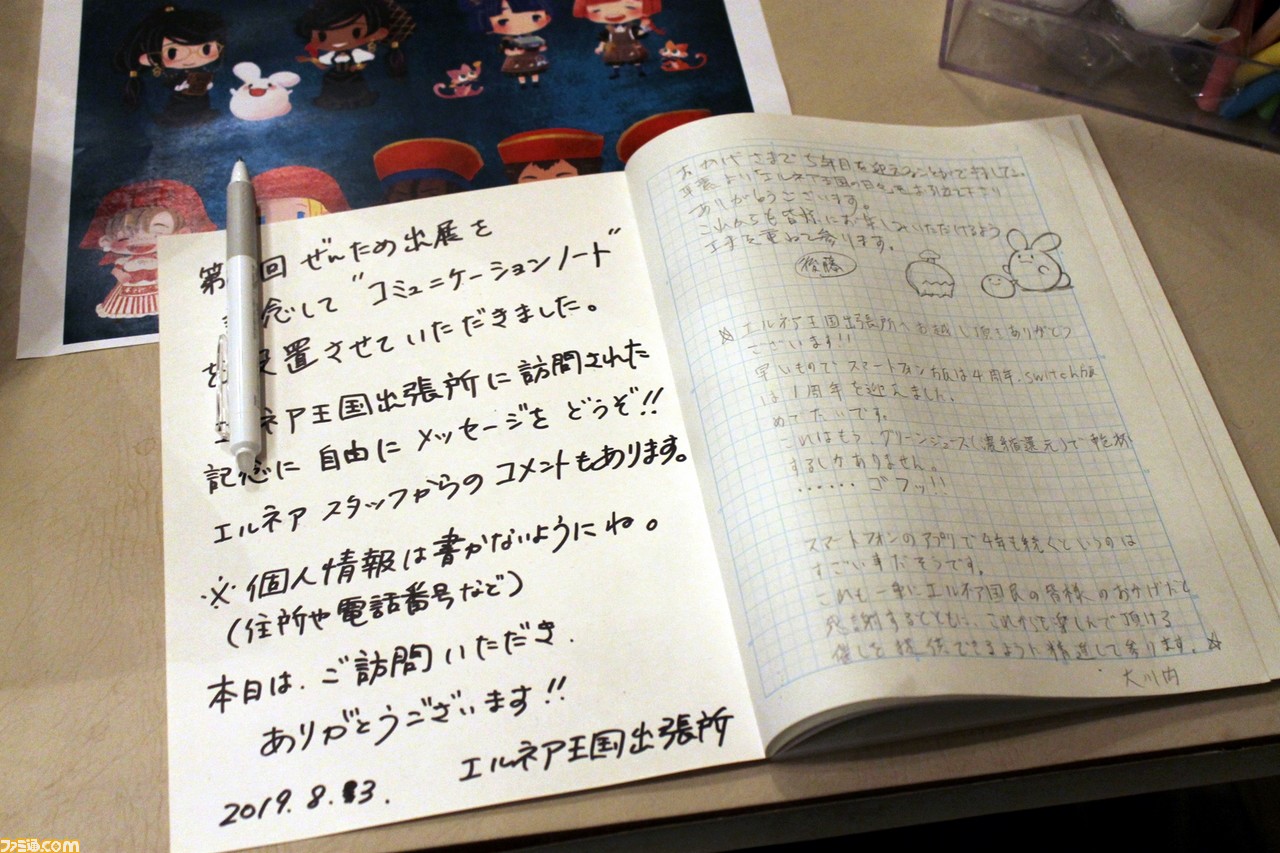 第 回 ぜんため出展を
念して "コミュニケーションノート"
を 設置させていただきました。
エルネア王国出張所に訪問された
記念に 自由に メッセージを どうぞ!!
エルネア スタッフからの コメントもあります。
※個人情報は書かないようにね。
(住所や電話番号など)
本日は、ご訪問いただき、
ありがとうございます!!
エルネア王国出張所
2019.8.3.
おかげさまで5年目を迎えることができました。
エルネア王国の日々を
ありがとうございます。
これからも皆様にお楽しみいただけるよう
工夫を重ねて参ります。
後藤
☆ エルネア王国出張所へお越し頂きありがとう
ございます!!
早いもので、スマートフォン版は4周年、switch版
は1周年を迎えました。
めでたいです。
これはもう、グリーンジュース(濃縮還元)で乾杯
するしかありません。
・・・・・・ゴフッ!!
スマートフォンのアプリで4年も続くというのは
すごい事だそうです。
これも一重にエルネア国民の皆様のおかげだと
感謝するとともに、これからも楽しんで頂ける
催しを提供できるように精進して参ります。☆
大川内
ファミ通.com